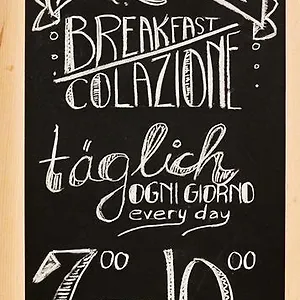 BREAKFAST
COLAZIONE
täglich
OGNI GIORNO
every day
7 00 10 00